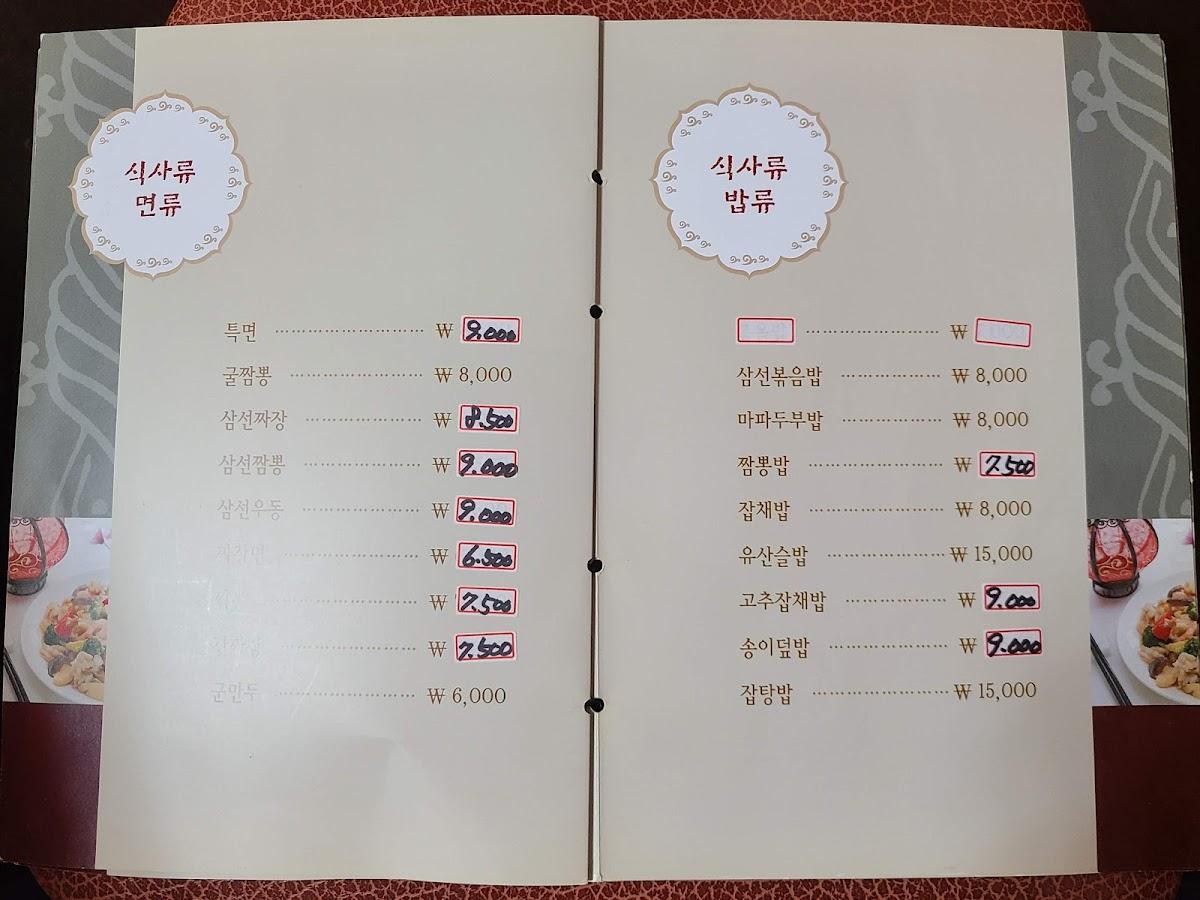 식사류
면류
특면 ₩ 9.000
굴짬뽕 ₩ 8,000
삼선짜장 ₩ 8.500
삼선짬뽕 ₩ 9.000
삼선우동 ₩ 9.000
₩ 6.500
₩ 7.500
₩ 7.500
군만두 ₩ 6,000
식사류
밥류
₩
삼선볶음밥 ₩ 8,000
마파두부밥 ₩ 8,000
짬뽕밥 ₩ 7.500
잡채밥 ₩ 8,000
유산슬밥 ₩ 15,000
고추잡채밥 ₩ 9.000
송이덮밥 ₩ 9.000
잡탕밥 ₩ 15,000